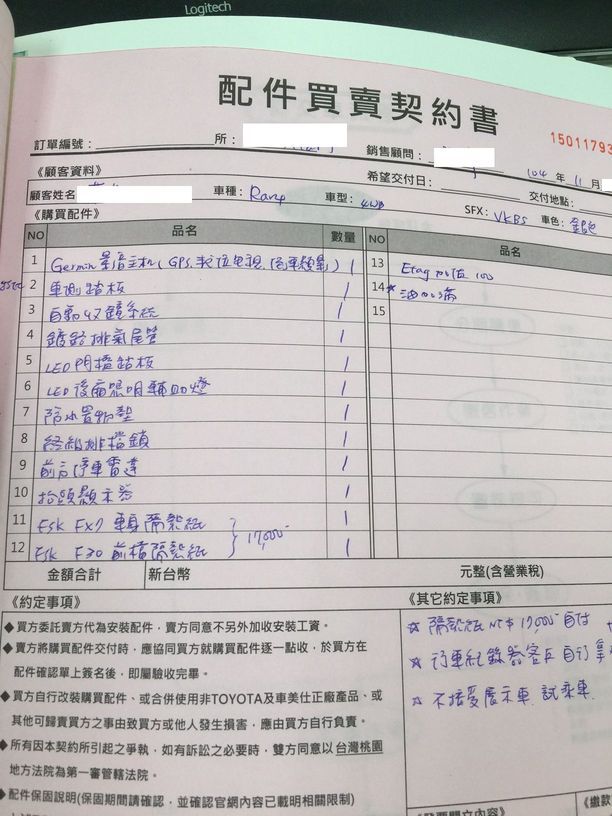 Logitech
配件買賣契約書
15011793
訂單編號： 所： 銷售顧問： 104 年 11 月
《顧客資料》 希望交付日： 交付地點：
顧客姓名 車種： Rav4 車型： 4WD SFX： VKBS 車色： 銀色
《購買配件》
NO 品名 數量 NO 品名
1 Germin 影音主機(GPS.數位電視.倒車顯影) 1
2 車側踏板 1
3 自動收鏡系統 1
4 鍍鉻排氣尾管 1
5 LED門檻踏板 1
6 LED後廂照明輔助燈 1
7 防水置物墊 1
8 終極排擋鎖 1
9 前方停車雷達 1
10 抬頭顯示器 1
11 FSK FX7 車身隔熱紙 1
12 FSK F30 前檔隔熱紙 1
17,000
13 Etag 加值 100
14 * 油加滿
15
金額合計 新台幣 元整(含營業稅)
《約定事項》
◆買方委託賣方代為安裝配件，賣方同意不另外加收安裝工資。
◆賣方將購買配件交付時，應協同買方就購買配件逐一點收，於買方在
配件確認單上簽名後，即屬驗收完畢。
◆買方自行改裝購買配件、或合併使用非TOYOTA及車美仕正廠產品、或
其他可歸責買方之事由致買方或他人發生損害，應由買方自行負責。
◆所有因本契約所引起之爭執，如有訴訟之必要時，雙方同意以台灣桃園
地方法院為第一審管轄法院。
◆配件保固說明(保固期間請確認，並確認官網內容已載明相關限制)
《其它約定事項》
☆ 隔熱紙NT$17,000自付
☆ 行車紀錄器客戶自行拿
☆ 不接受展示車.試乘車
《繳款